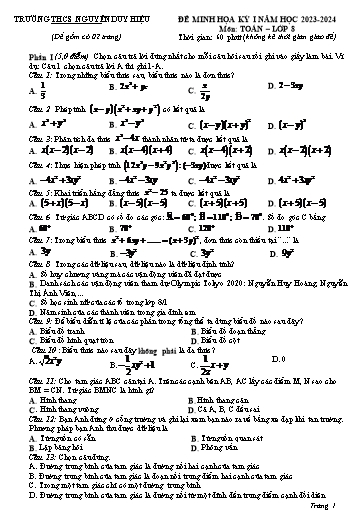 TRƯỜNG THCS NGUYỄN DUY HIỆU ĐỀ MINH HỌA KỲ I NĂM HỌC 2023-2024
Môn: TOÁN – LỚP 8
(Đề gồm có 02 trang) Thời gian: 60 phút (không kể thời gian giao đề)
Phần I (5,0 điểm) Chọn câu trả lời đúng nhất cho mỗi câu hỏi sau rồi ghi vào giấy làm bài. Ví
dụ: Câu 1 chọn câu trả lời A thì ghi 1-A.
Câu 1: Trong những biểu thức sau, biểu thức nào là đơn thức?
A. 1/5 B. 2x³ + y. C. x/2y D. 2 − 3xy
Câu 2. Phép tính (x − y)(x² + xy + y²) có kết quả là
A. x³ − y³ B. x³ + y³ C. (x − y)(x + y)² D. (x − y)³
Câu 3: Phân tích đa thức x³ − 4x thành nhân tử ta được kết quả là
A. x(x − 2)(x − 2) B. x(x − 4)(x + 4) C. x(x − 4)(x + 2) D. x(x − 2)(x + 2)
Câu 4: Thực hiện phép tính : (−3xy) được kết quả là
A. −4x² + 3xy² B. −4x² − 3xy C. −4x² − 3xy² D. 4x² + 3xy²
Câu 5: Khai triển hằng đẳng thức x² − 25 ta được kết quả là
A. (5 + x)(5 − x) B. (x − 5)(x − 5) C. (x + 5)(x + 5) D. (x − 5)(x + 5)
Câu 6 Tứ giác ABCD có số đo các góc: = 68°; = 110°; = 78°. Số đo góc C bằng
A. 68° B. 78° C. 128° D. 110°
Câu 7: Trong biểu thức , đơn thức còn thiếu tại "..." là
A. 3y B. −3y² C. 3y² D. 9y²
Câu 8 Trong các dữ liệu sau, dữ liệu nào là dữ liệu định tính?
A. Số huy chương vàng mà các vận động viên đã đạt được
B. Danh sách các vận động viên tham dự Olympic Tokyo 2020: Nguyễn Huy Hoàng, Nguyễn
Thị Ánh Viên,...
C. Số học sinh nữ của các tổ trong lớp 8/1
D. Năm sinh của các thành viên trong gia đình em
Câu 9: Để biểu diễn tỉ lệ của các phần trong tổng thể ta dùng biểu đồ nào sau đây?
A. Biểu đồ tranh B. Biểu đồ đoạn thẳng
C. Biểu đồ hình quạt tròn D. Biểu đồ cột
Câu 10: Biểu thức nào sau đây không phải là đa thức?
A. √2x²y B. −1/2xy² + 1 C. D. 0
Câu 11: Cho tam giác ABC cân tại A. Trên các cạnh bên AB, AC lấy các điểm M, N sao cho
BM = CN. Tứ giác BMNC là hình gì?
A. Hình thang B. Hình thang cân
C. Hình thang vuông D. Cả A, B, C đều sai
Câu 12: Bạn Anh đứng ở cổng trường và ghi lại xem bạn nào ra về bằng xe đạp khi tan trường.
Phương pháp bạn Anh thu được dữ liệu là
A. Từ nguồn có sẵn B. Từ nguồn quan sát
B. Lập bảng hỏi D. Phỏng vấn
Câu 13: Chọn câu đúng.
A. Đường trung bình của tam giác là đường nối hai cạnh của tam giác
B. Đường trung bình của tam giác là đoạn nối trung điểm hai cạnh của tam giác
C. Trong một tam giác chỉ có một đường trung bình
D. Đường trung bình của tam giác là đường nối từ một đỉnh đến trung điểm cạnh đối diện
Trang 1